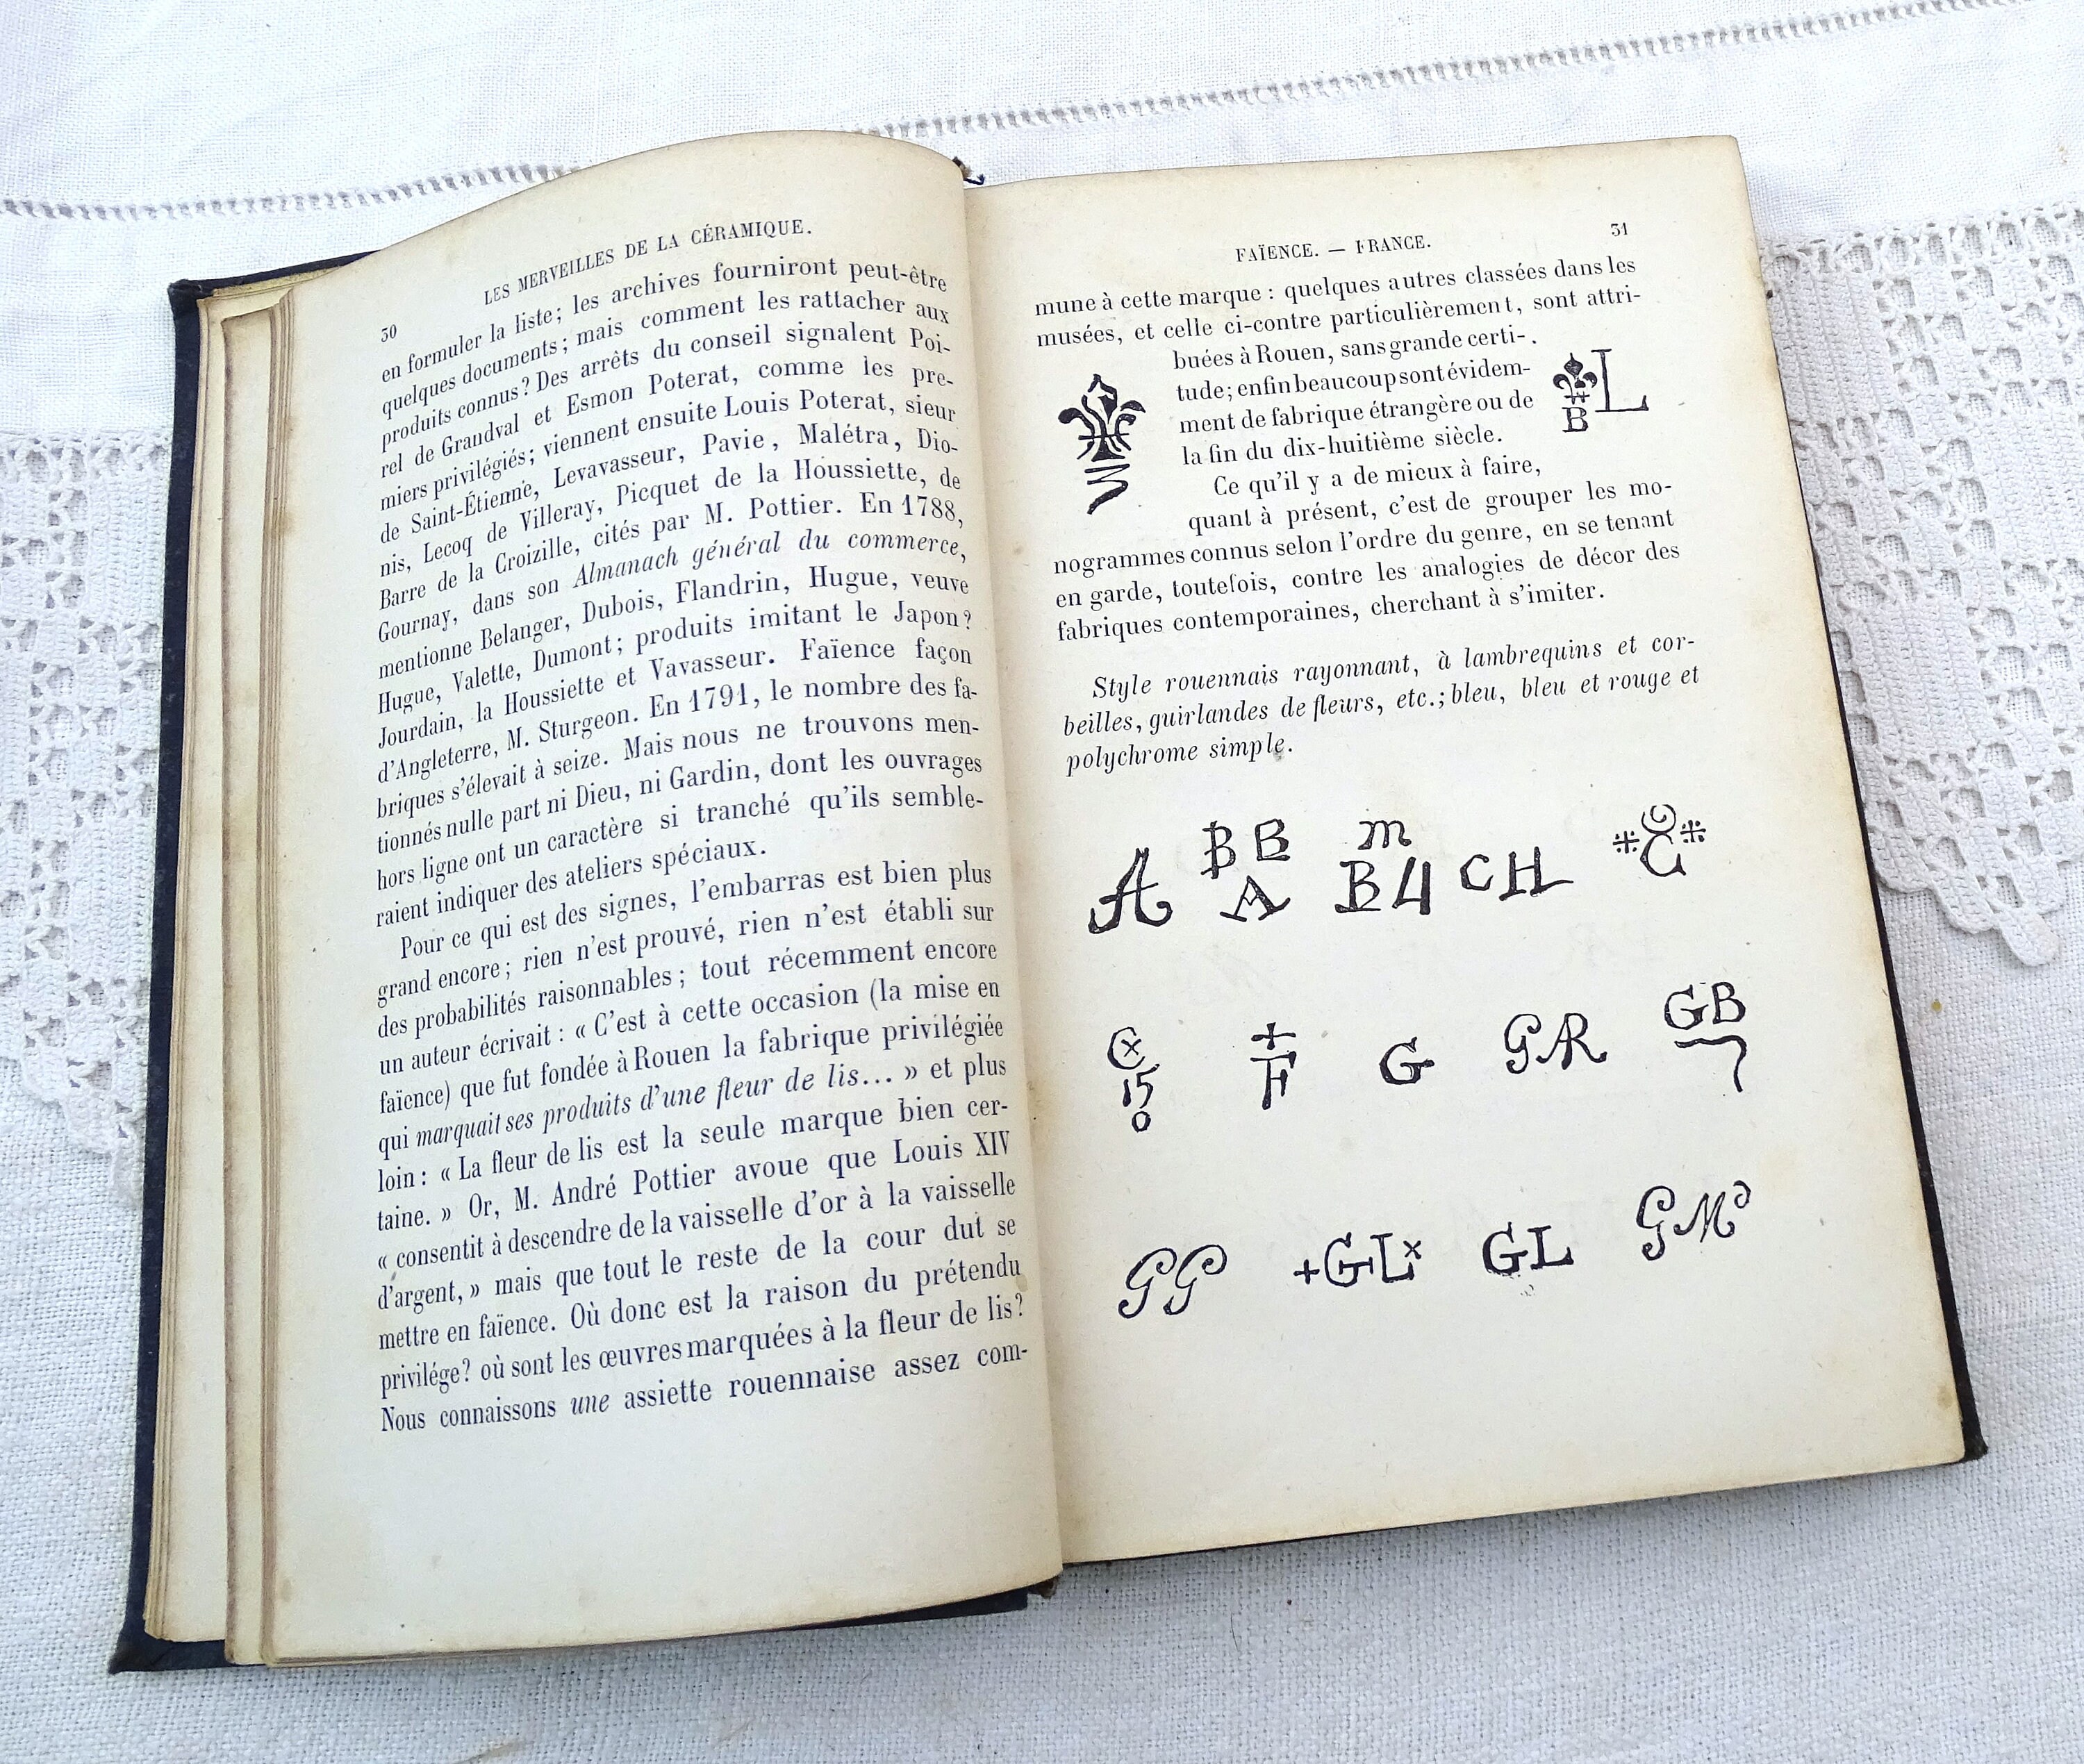 30
LES MERVEILLES DE LA CÉRAMIQUE.
en formuler la liste; les archives fourniront peut-être
quelques documents; mais comment les rattacher aux
produits connus? Des arrêts du conseil signalent Poi-
rel de Grandval et Esmon Poterat, comme les pre-
miers privilégiés; viennent ensuite Louis Poterat, sieur
de Saint-Étienne, Levavasseur, Pavie, Malétra, Dio-
nis, Lecoq de Villeray, Picquet de la Houssiette, de
Barre de la Croizille, cités par M. Pottier. En 1788,
Gournay, dans son Almanach général du commerce,
mentionne Belanger, Dubois, Flandrin, Hugue, veuve
Hugue, Valette, Dumont; produits imitant le Japon?
Jourdain, la Houssiette et Vavasseur. Faïence façon
d'Angleterre, M. Sturgeon. En 1791, le nombre des fa-
briques s'élevait à seize. Mais nous ne trouvons men-
tionnés nulle part ni Dieu, ni Gardin, dont les ouvrages
hors ligne ont un caractère si tranché qu'ils semble-
raient indiquer des ateliers spéciaux.
Pour ce qui est des signes, l'embarras est bien plus
grand encore; rien n'est prouvé, rien n'est établi sur
des probabilités raisonnables; tout récemment encore
un auteur écrivait : « C'est à cette occasion (la mise en
faïence) que fut fondée à Rouen la fabrique privilégiée
qui marquait ses produits d'une fleur de lis... » et plus
loin : « La fleur de lis est la seule marque bien cer-
taine. » Or, M. André Pottier avoue que Louis XIV
« consentit à descendre de la vaisselle d'or à la vaisselle
d'argent, » mais que tout le reste de la cour dut se
mettre en faïence. Où donc est la raison du prétendu
privilége? où sont les œuvres marquées à la fleur de lis?
Nous connaissons une assiette rouennaise assez com-
FAÏENCE. — FRANCE.
31
mune à cette marque : quelques autres classées dans les
musées, et celle ci-contre particulièrement, sont attri-
buées à Rouen, sans grande certi-
tude; enfin beaucoup sont évidem-
ment de fabrique étrangère ou de
la fin du dix-huitième siècle.
B L
Ce qu'il y a de mieux à faire,
quant à présent, c'est de grouper les mo-
nogrammes connus selon l'ordre du genre, en se tenant
en garde, toutefois, contre les analogies de décor des
fabriques contemporaines, cherchant à s'imiter.
Style rouennais rayonnant, à lambrequins et cor-
beilles, guirlandes de fleurs, etc.; bleu, bleu et rouge et
polychrome simple.
B B m
A A B CH
C 15 0 F G GR GB
GG +GLx GL GM